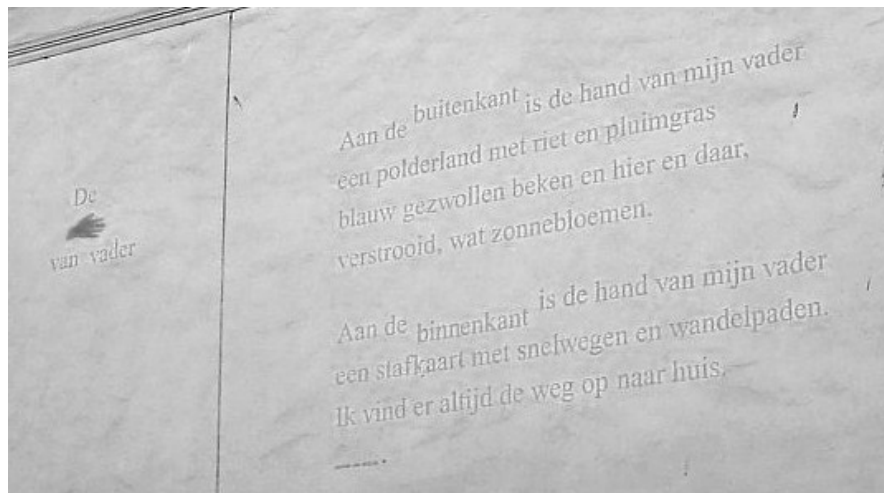 De
van vader
Aan de buitenkant is de hand van mijn vader
een polderland met riet en pluimgras
blauw gezwollen beken en hier en daar,
verstrooid, wat zonnebloemen.
Aan de binnenkant is de hand van mijn vader
een stafkaart met snelwegen en wandelpaden.
Ik vind er altijd de weg op naar huis.